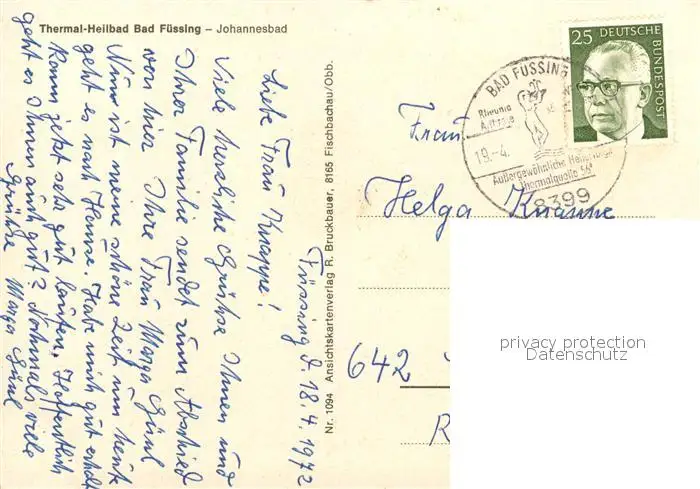 Thermal-Heilbad Bad Füssing – Johannesbad
Füssing d. 18.4.1972
Liebe Frau Knappe!
Viele herzliche Grüße Ihnen und
Ihrer Familie sendet zum Abschied
von hier Ihre Frau Marga
Nun ist meine schöne Zeit um heute
geht es nach Hause. Habe mich gut erholt
kann jetzt sehr gut laufen. Hoffentlich
geht es Ihnen auch gut? Nochmals viele
Grüße Marga
Nr. 1094 Ansichtskartenverlag R. Bruckbauer, 8165 Fischbachau/Obb.
25 DEUTSCHE BUNDESPOST
BAD FÜSSING
Rheuma
19.-4.
Außergewöhnliche Heilerfolge
Thermalquelle 56°
8399
Frau
Helga Knappe
642
R
privacy protection
Datenschutz